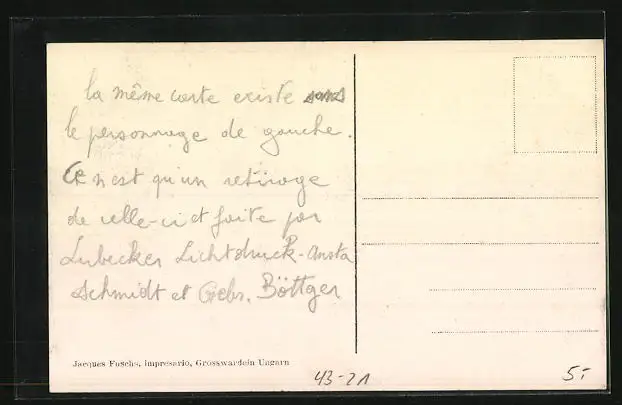 la même carte existe sans
le personnage de gauche.
Ce n'est qu'un retirage
de celle-ci et faite par
Lubecker Lichtdruck-Ansta
Schmidt et Gebr. Böttger
Jacques Fuschs, impresario, Grosswardein Ungarn
43-21
5,-